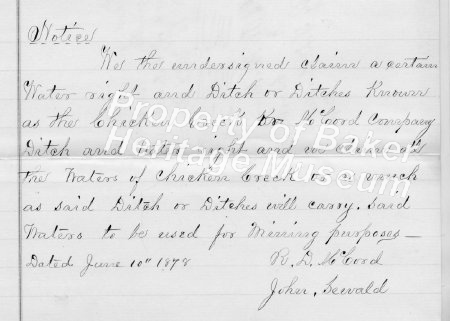 Notice
We the undersigned claim a certain
Water right and Ditch or Ditches Known
as the Chicken Creek or McCord Company
Ditch and water right and we claim all
the Waters of Chicken Creek or as much
as said Ditch or Ditches will carry. Said
Waters to be used for Mining purposes —
Dated June 10th 1878
R. D. McCord
John, Sewald
Property of Baker
Heritage Museum